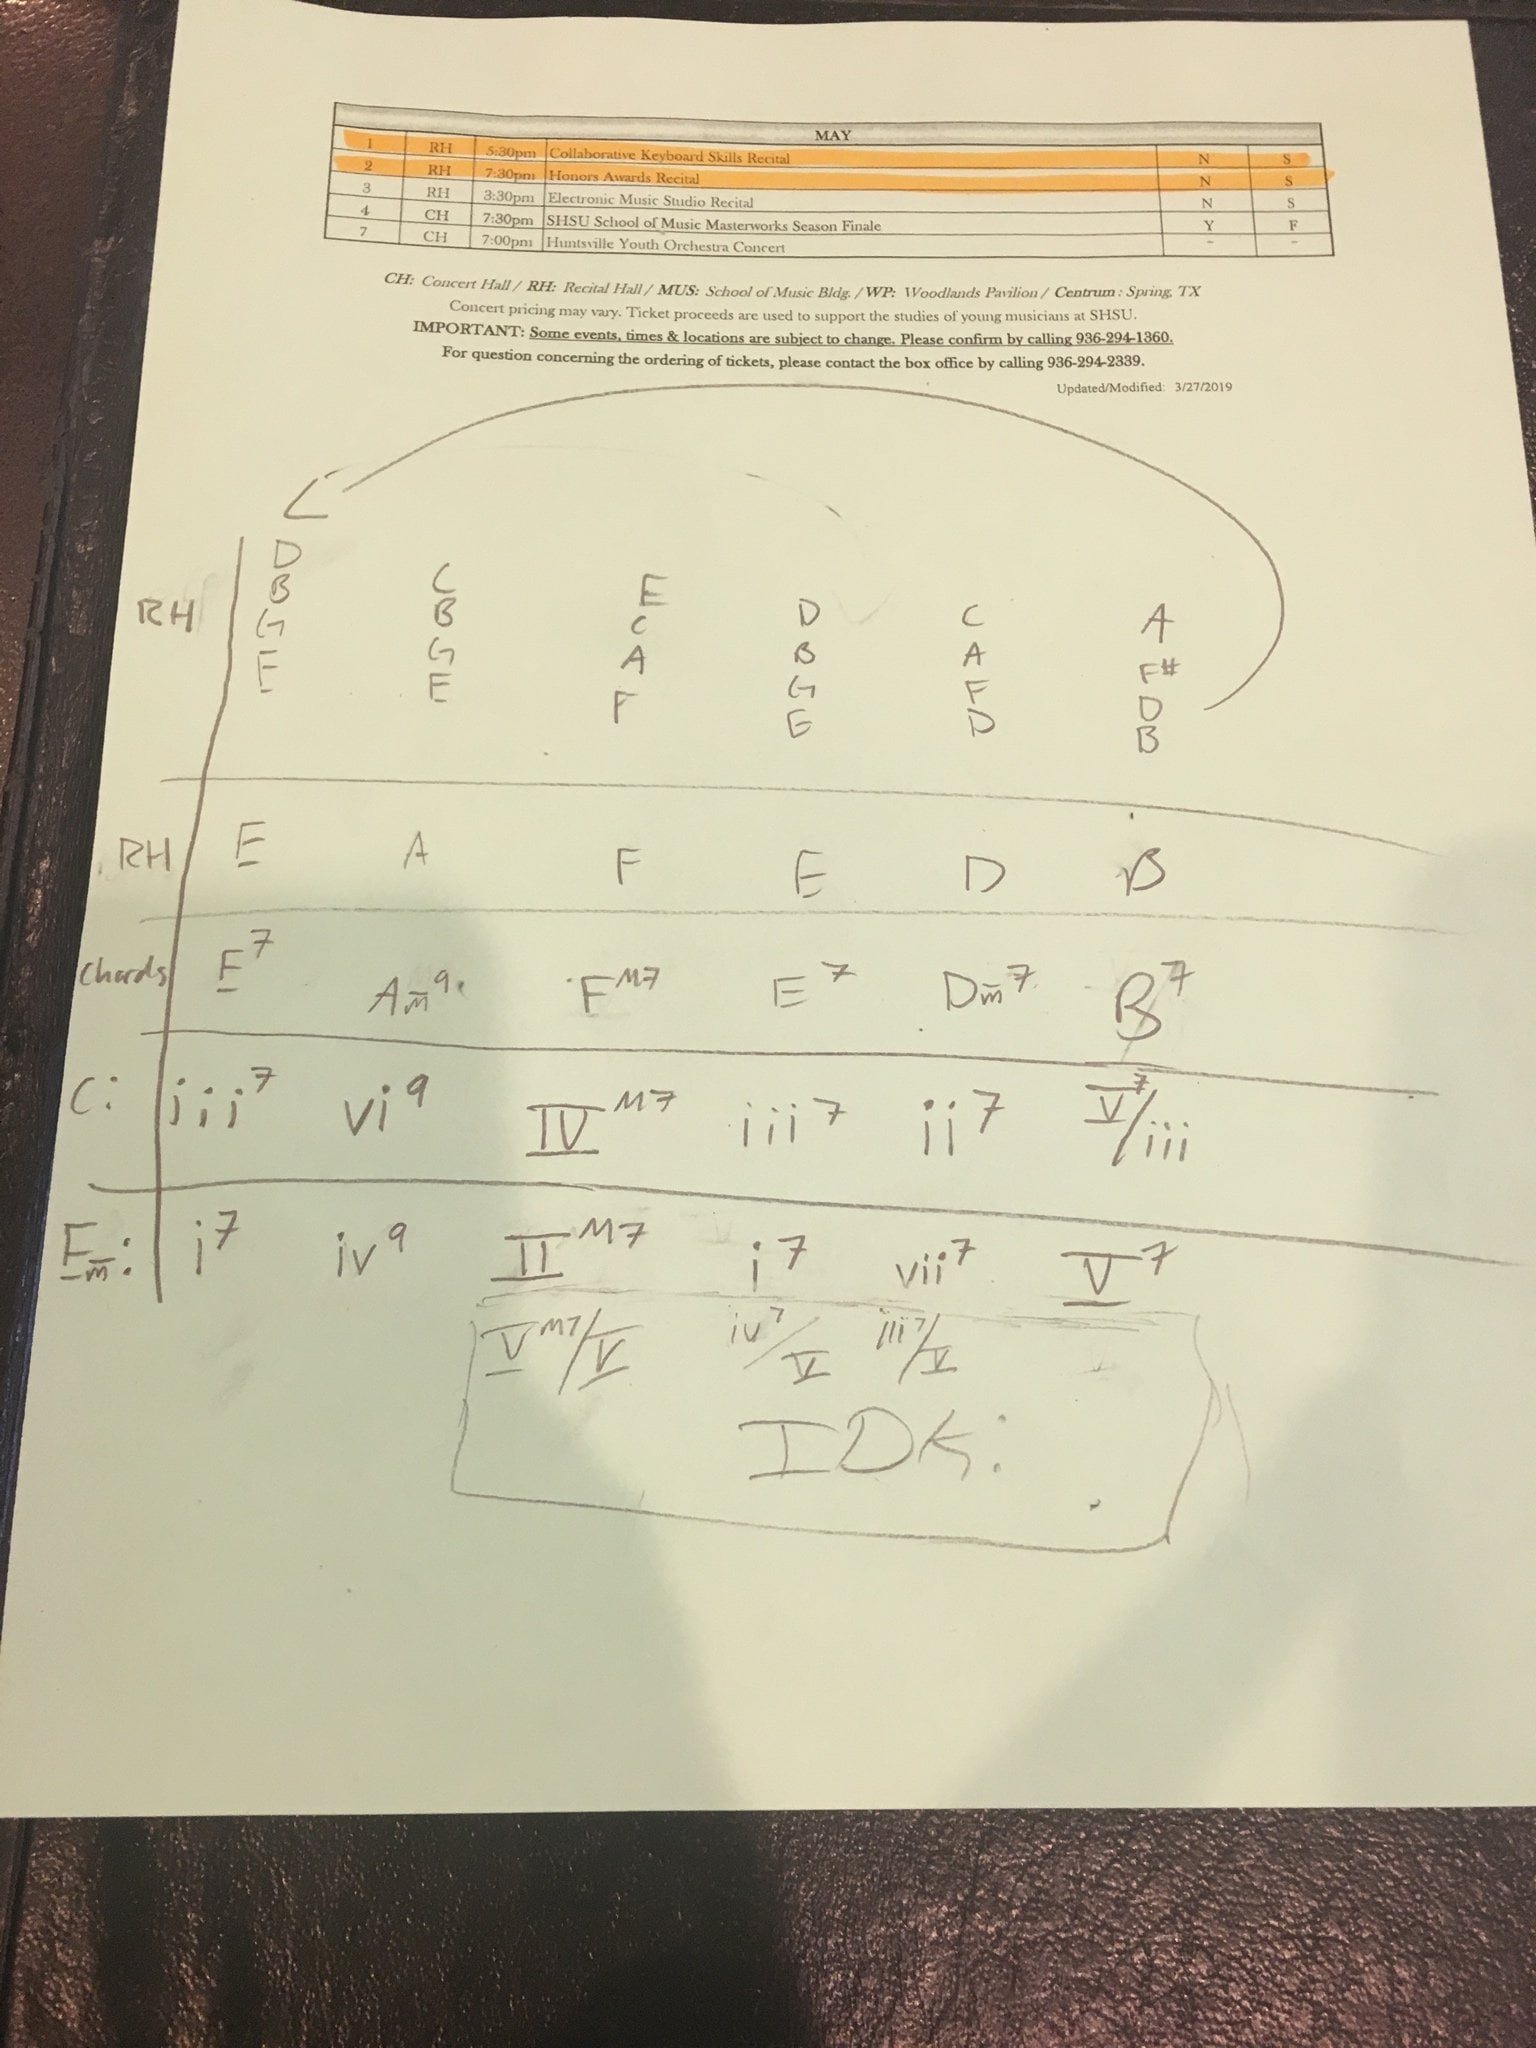 MAY
1 RH 5:30pm Collaborative Keyboard Skills Recital N S
2 RH 7:30pm Honors Awards Recital N S
3 RH 3:30pm Electronic Music Studio Recital N S
4 CH 7:30pm SHSU School of Music Masterworks Season Finale Y F
7 CH 7:00pm Huntsville Youth Orchestra Concert - -
CH: Concert Hall / RH: Recital Hall / MUS: School of Music Bldg. / WP: Woodlands Pavilion / Centrum: Spring, TX
Concert pricing may vary. Ticket proceeds are used to support the studies of young musicians at SHSU.
IMPORTANT: Some events, times & locations are subject to change. Please confirm by calling 936-294-1360.
For question concerning the ordering of tickets, please contact the box office by calling 936-294-2339.
Updated/Modified: 3/27/2019
RH
D C E D C A
B B C B A F#
G G A G F D
E E F E D B
RH E A F E D B
Chords E7 Am9 FM7 E7 Dm7 B7
C: iii7 vi9 IVM7 iii7 ii7 V7/iii
Em: i7 iv9 IIM7 i7 vii7 V7
VM7/V iv7/V iii7/V
IDK: